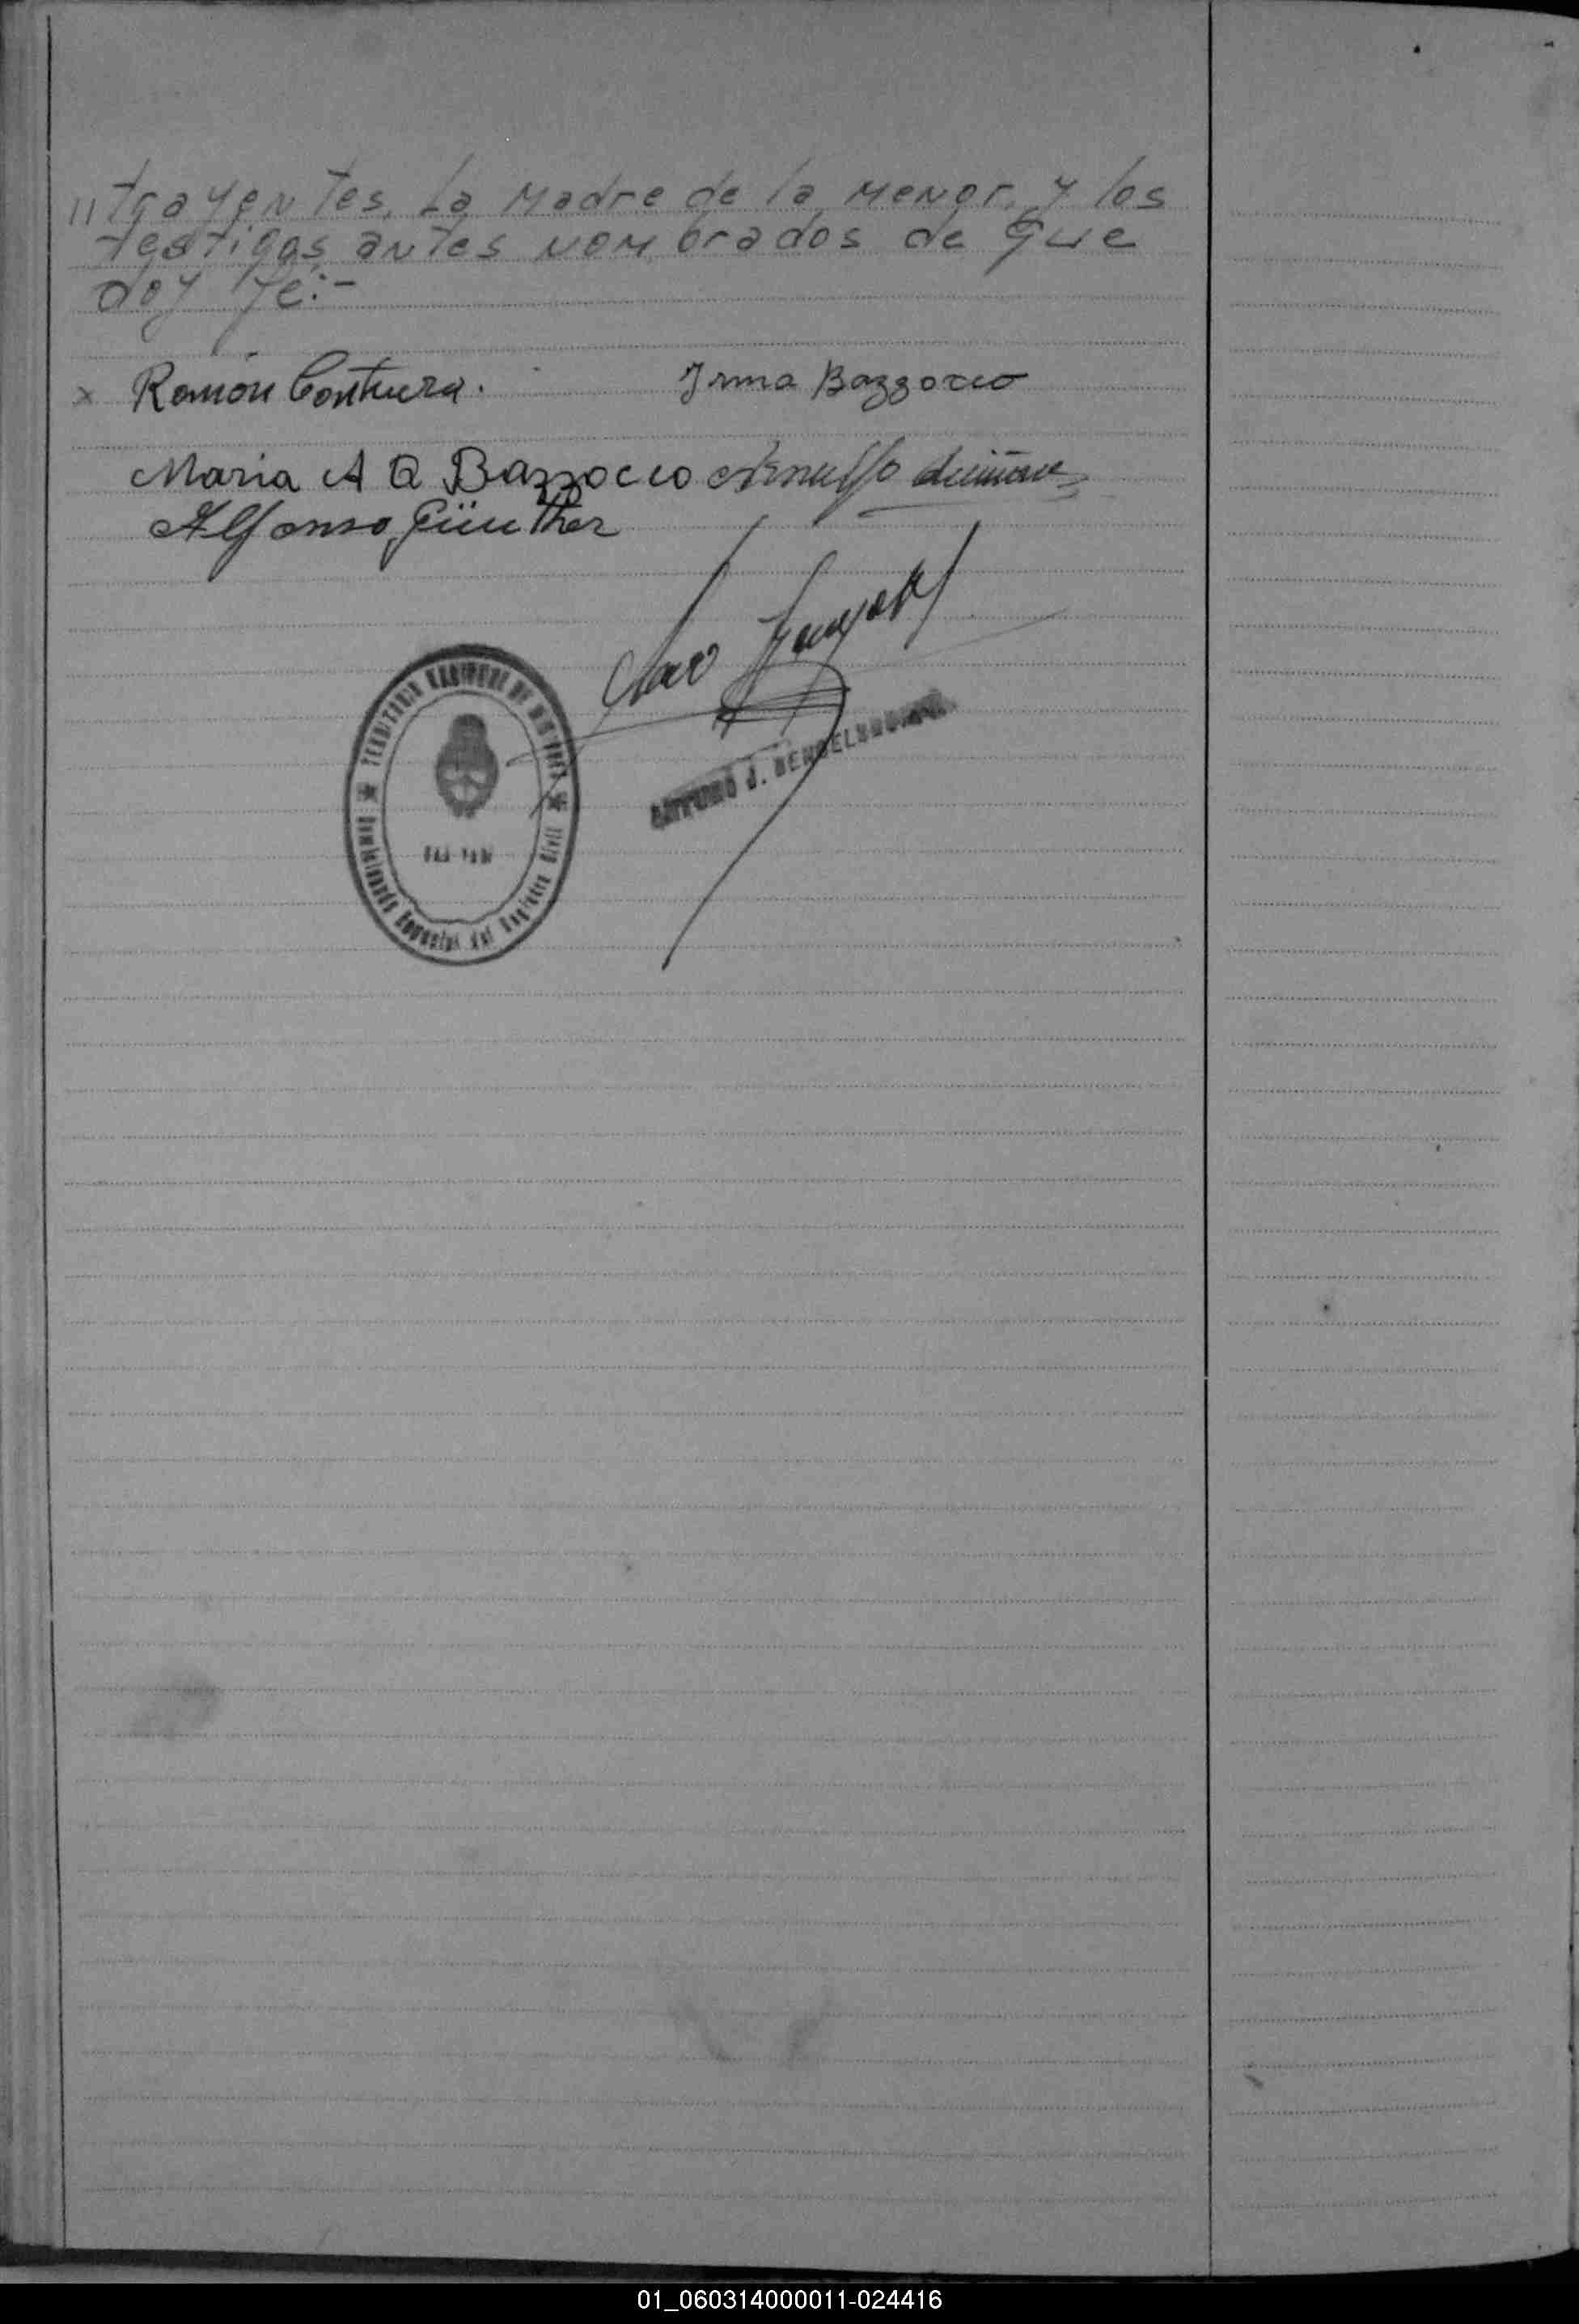 //trayentes, La Madre de la Menor, y los
testigos antes nombrados de que
doy fé:-
x Ramón Contrera. Irma Bazzocco
Maria A Q Bazzocco Arnulfo
Alfonso Günther
TERRITORIO NACIONAL DE MISIONES
ARTURO J.
del Registro Civil
01_060314000011-024416